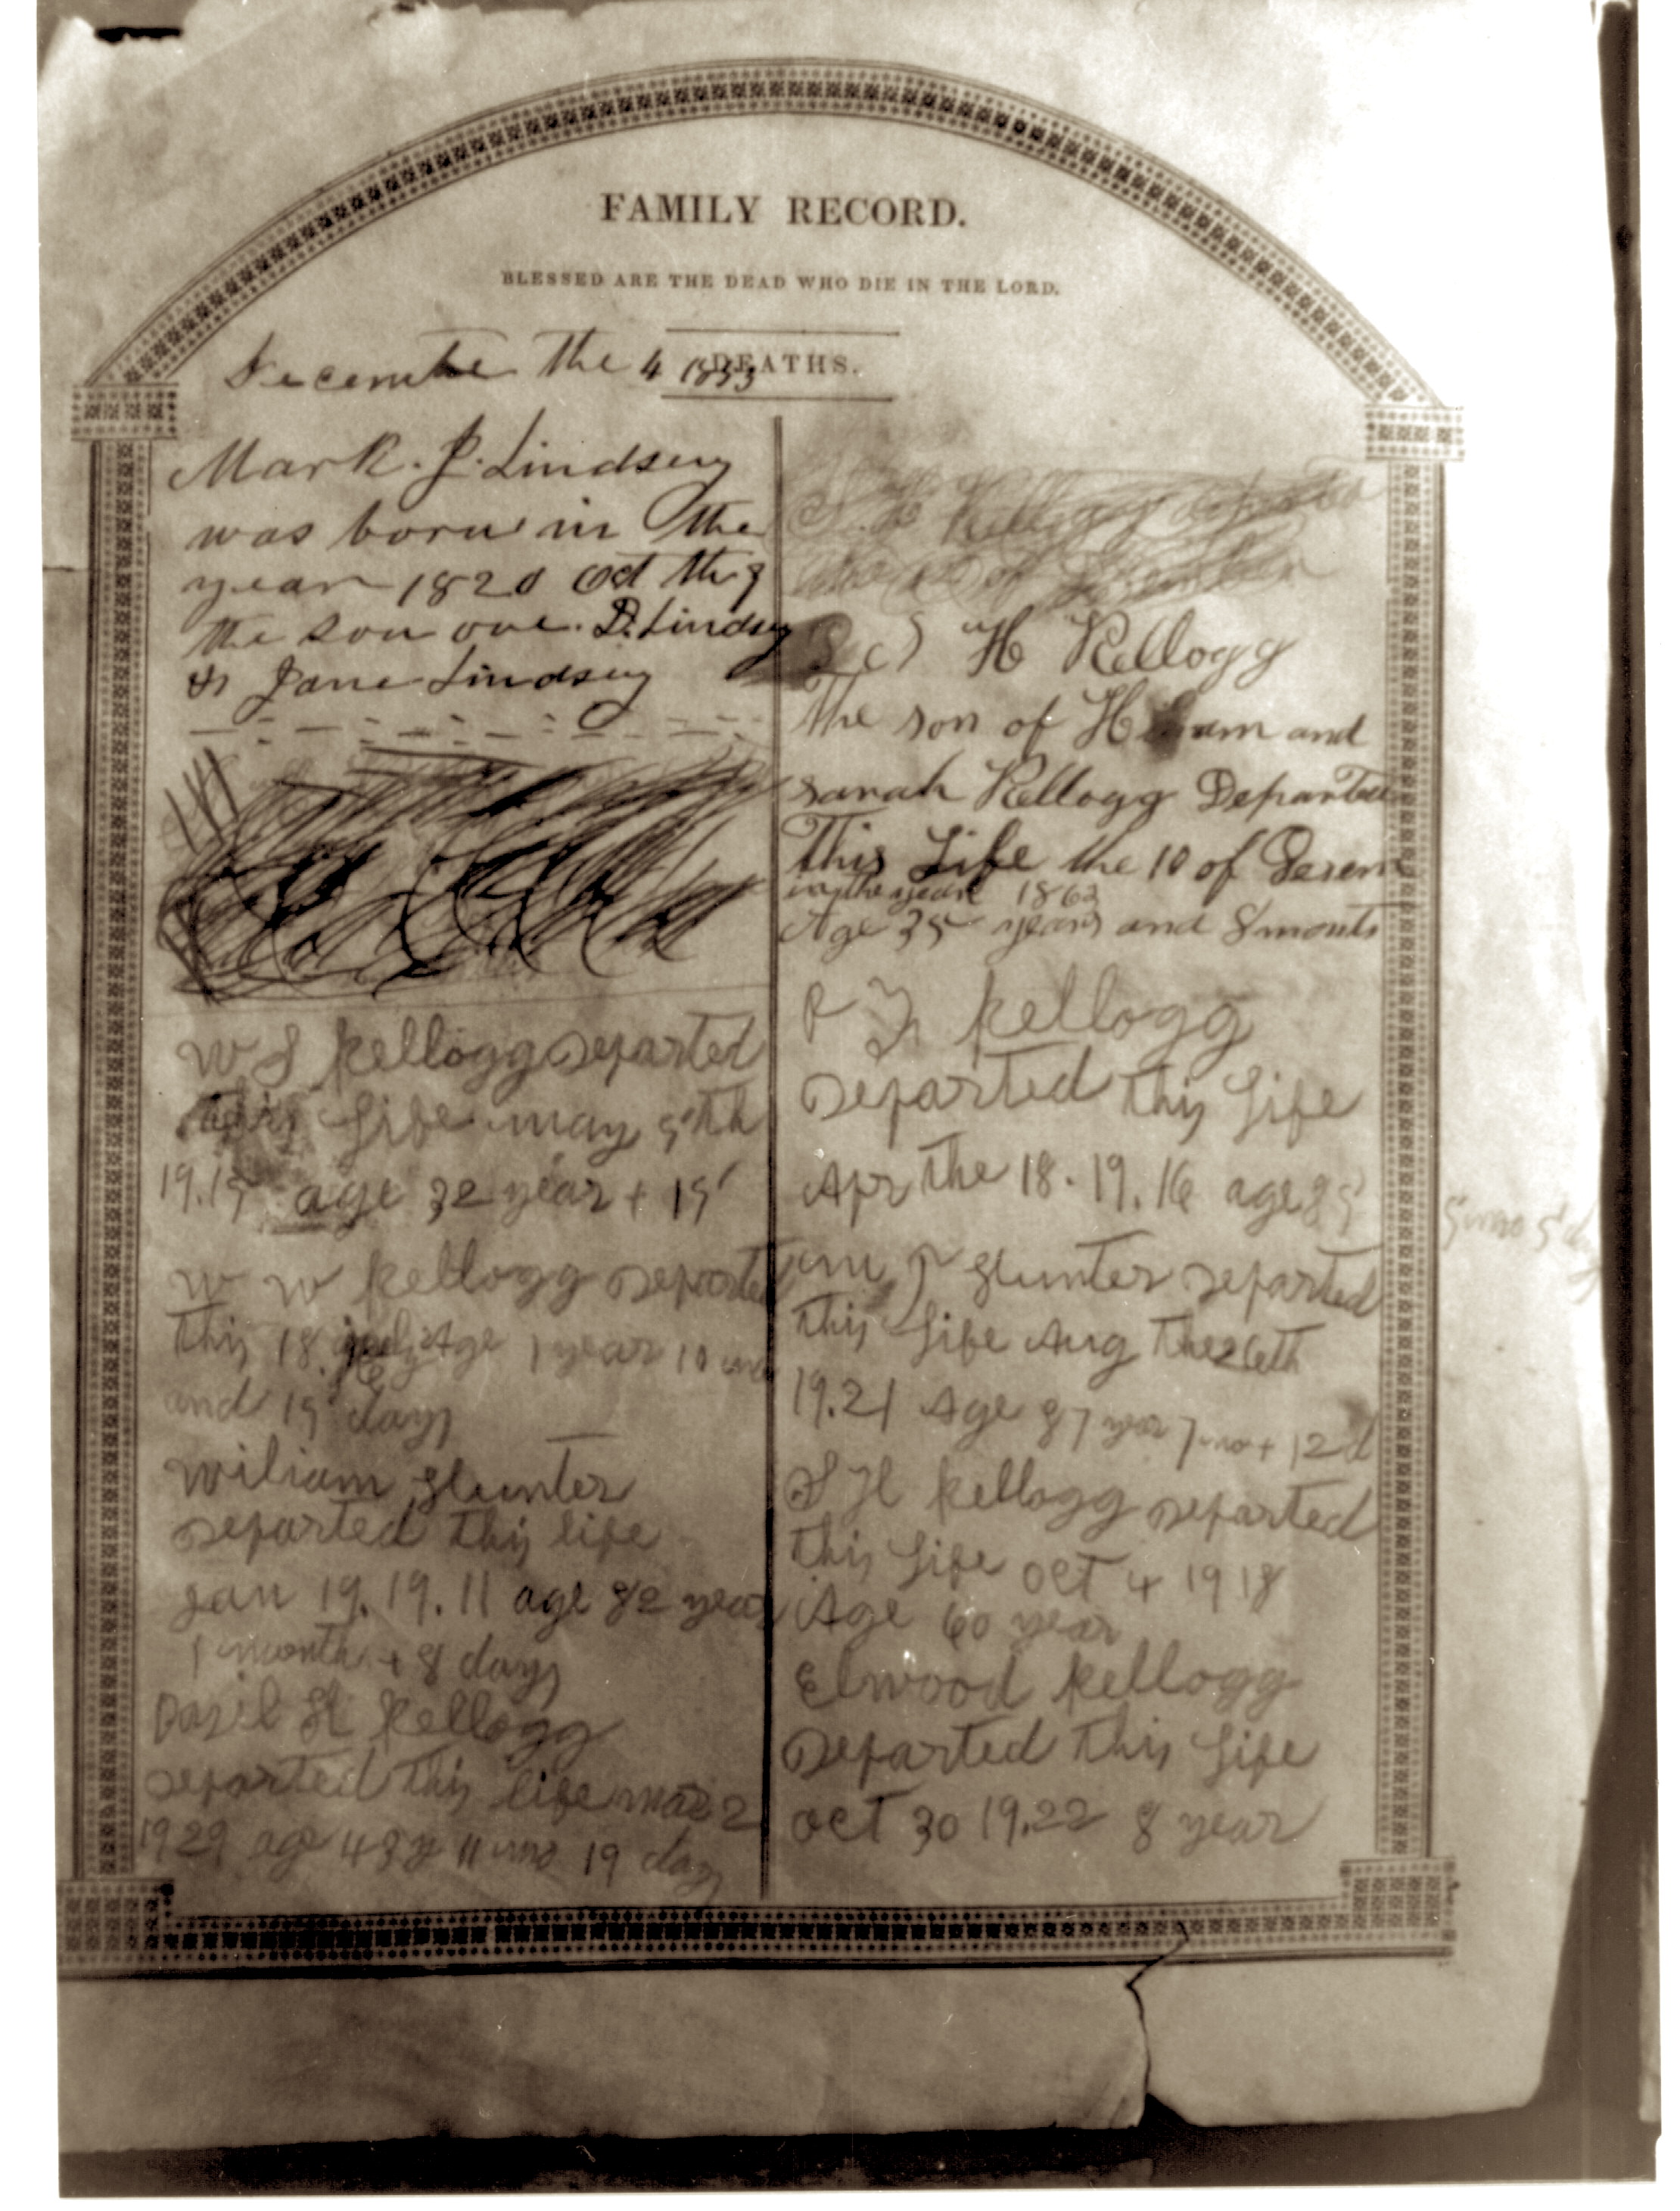 FAMILY RECORD.
BLESSED ARE THE DEAD WHO DIE IN THE LORD.
DEATHS.
Decembe the 4 1853
Mark. J. Lindsey
was born in the
year 1820 Oct th
the son ove. D. Lindsey
Jane Lindsey
W S kellogg departed
this Life may 5th
19.15 age 32 year + 15
W W kellogg departed
this 18 Age 1 year 10 mo
and 15 days
Wiliam Hunter
departed this life
Jan 19. 19. 11 age 82 years
1 month + 8 days
Basil H kellogg
departed this life 2
1929 age 48 y 11 mo 19 days
Kellogg
S H Kellogg
The son of Hiram and
sarah Kellogg Departed
This Life the 10 of Desem
in the year 1863
Age 35 years and 8 monts
P Y kellogg
Departed this Life
Apr the 18. 19. 16 age 85
5 mo 5 d
Hunter departed
this Life Aug the 26th
19.21 Age 87 year 7 mo + 12 d
S H kellogg departed
this Life oct 4 1918
Age 60 year
Elwood kellogg
Departed this Life
oct 30 19.22 8 year